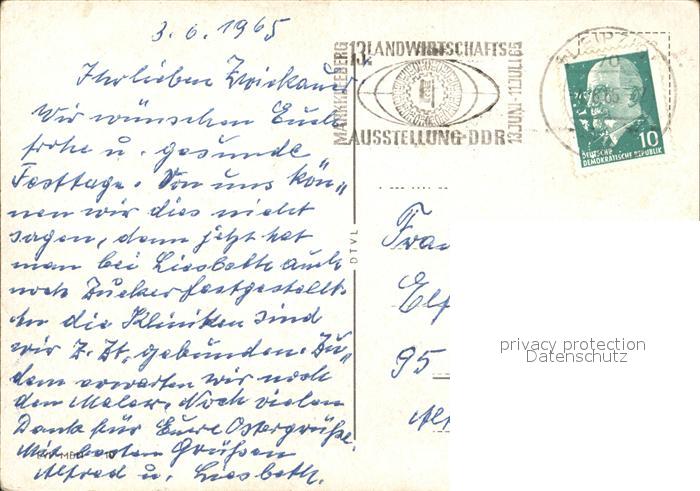 3. 6. 1965
Ihr lieben Zwickauer
Wir wünschen Euch
frohe u. gesunde
Festtage. Von uns kön„
nen wir dies nicht
sagen, denn jetzt hat
man bei Liesbeth auch
noch Zucker festgestellt.
An die Kliniken sind
wir z. Zt. gebunden. Zu„
dem erwarten wir noch
den Maler. Noch vielen
Dank für Eure Ostergrüße.
Mit besten Grüßen
Alfred u. Liesbeth.
MARKKLEEBERG
13. LANDWIRTSCHAFTS
AUSSTELLUNG·DDR
13.JUNI-11.JULI 65
10
DEUTSCHE
DEMOKRATISCHE REPUBLIK
DTVL
Elf
95
privacy protection
Datenschutz